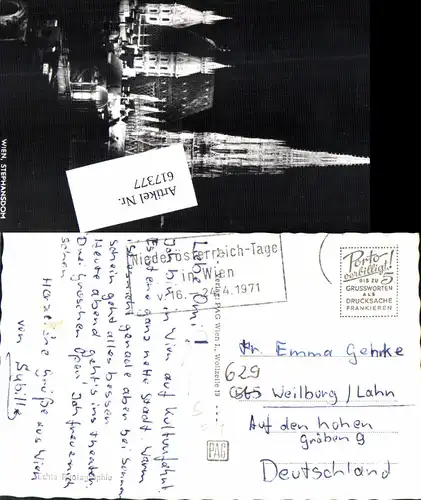 WIEN, STEPHANSDOM
Artikel Nr.
6177377
Niederösterreich-Tage
in Wien
v. 16. 4. 1971
Porto
verbilligt!
5
BIS ZU
GRUSSWORTEN
ALS
DRUCKSACHE
FRANKIEREN
Liebe Omi!
Ich bin in Wien auf Kulturfahrt.
Es ist eine ganz nette Stadt. Warm
ist es nicht gerade aber bei Sonnen
schein geht alles besser.
Heute abend geht's ins Theater:
Drei Groschen Oper. Ich freu mich
schon.
Herzliche Grüße aus Wien
von Sybille
Verlag: PAG Wien I., Wollzeile 19
PAG
Echte Photographie
Fr. Emma Gehrke
629
Weilburg/Lahn
Auf den hohen
Gräben 9
Deutschland